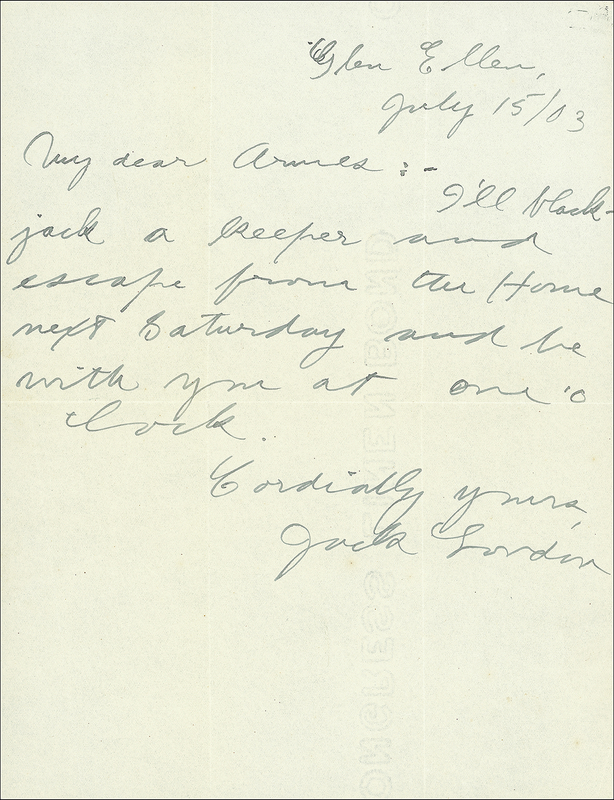 Glen Ellen,
July 15/03
My dear Armes :-
I'll black-
jack a keeper and
escape from the Home
next Saturday and be
with you at one o'
clock.
Cordially yours,
Jack London
CONGRESS LINEN BOND